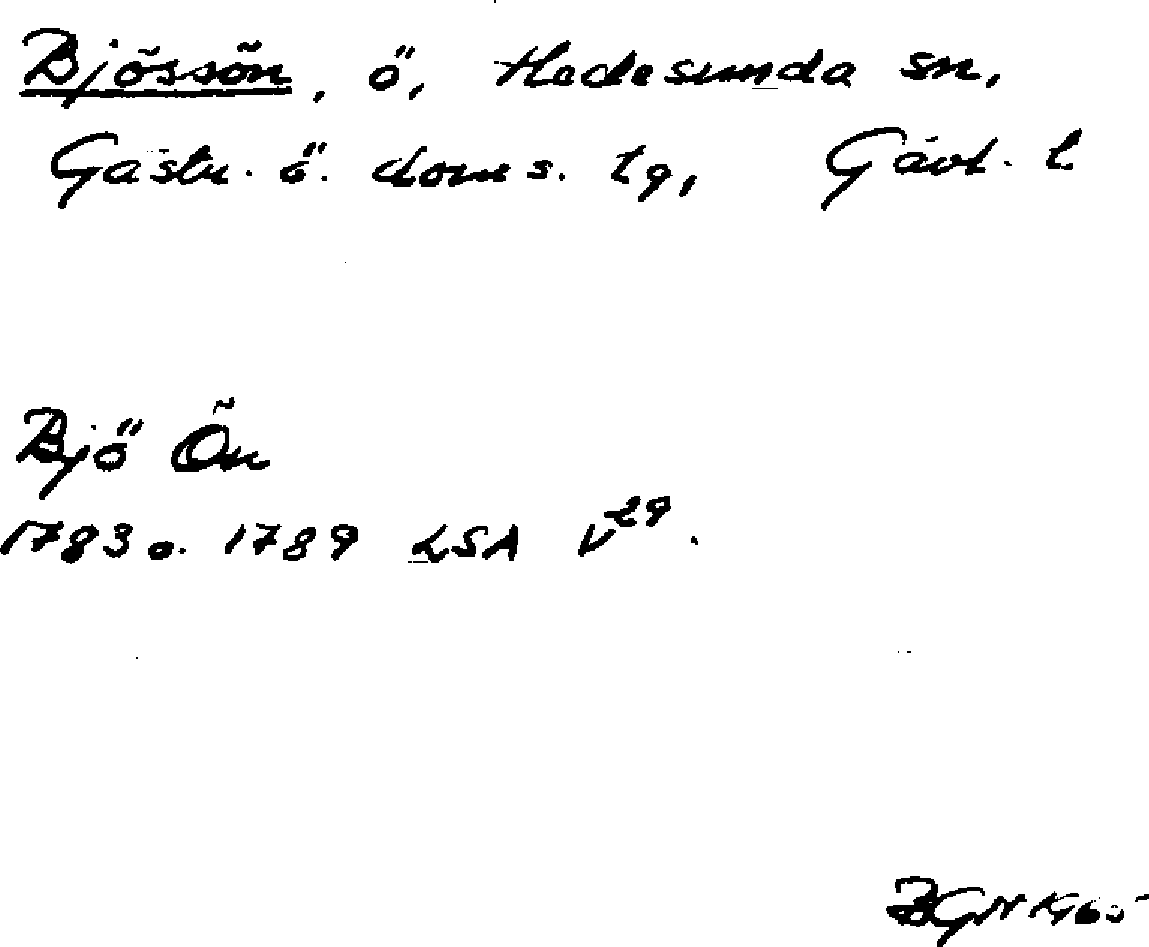 Bjössön, ö, Hedesunda sn,
Gästr. ö. doms. lg, Gävl. l
Bjö Ön
1783 o. 1789 LSA V29.
BGN 1965